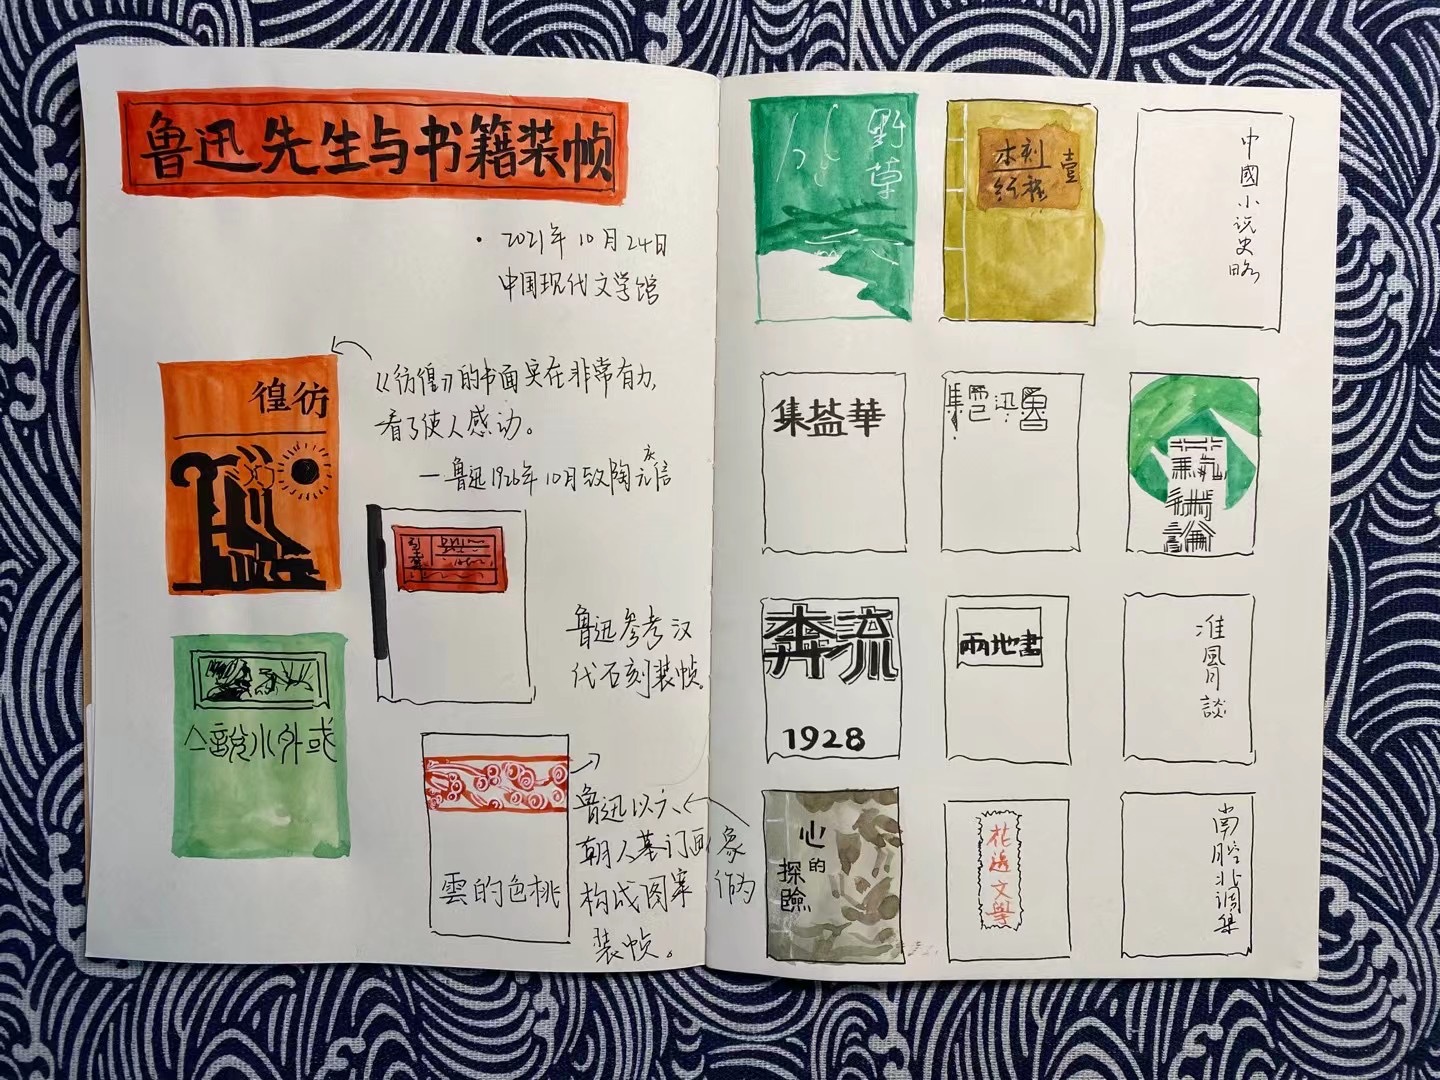 鲁迅先生与书籍装帧
· 2021年10月24日
中国现代文学馆
彷徨
《彷徨》的书面实在非常有力,
看了使人感动。
—鲁迅1926年10月致陶元庆信
鲁迅参考汉
代石刻装帧。
或外小說亼
桃色的雲
鲁迅以六
朝人墓门画象
构成图案作为
装帧。
野草
木刻
纪程
壹
中國小说史略
華盖集
奔流
1928
兩地書
准風月談
心的
探險
花邊文學
南腔北調集